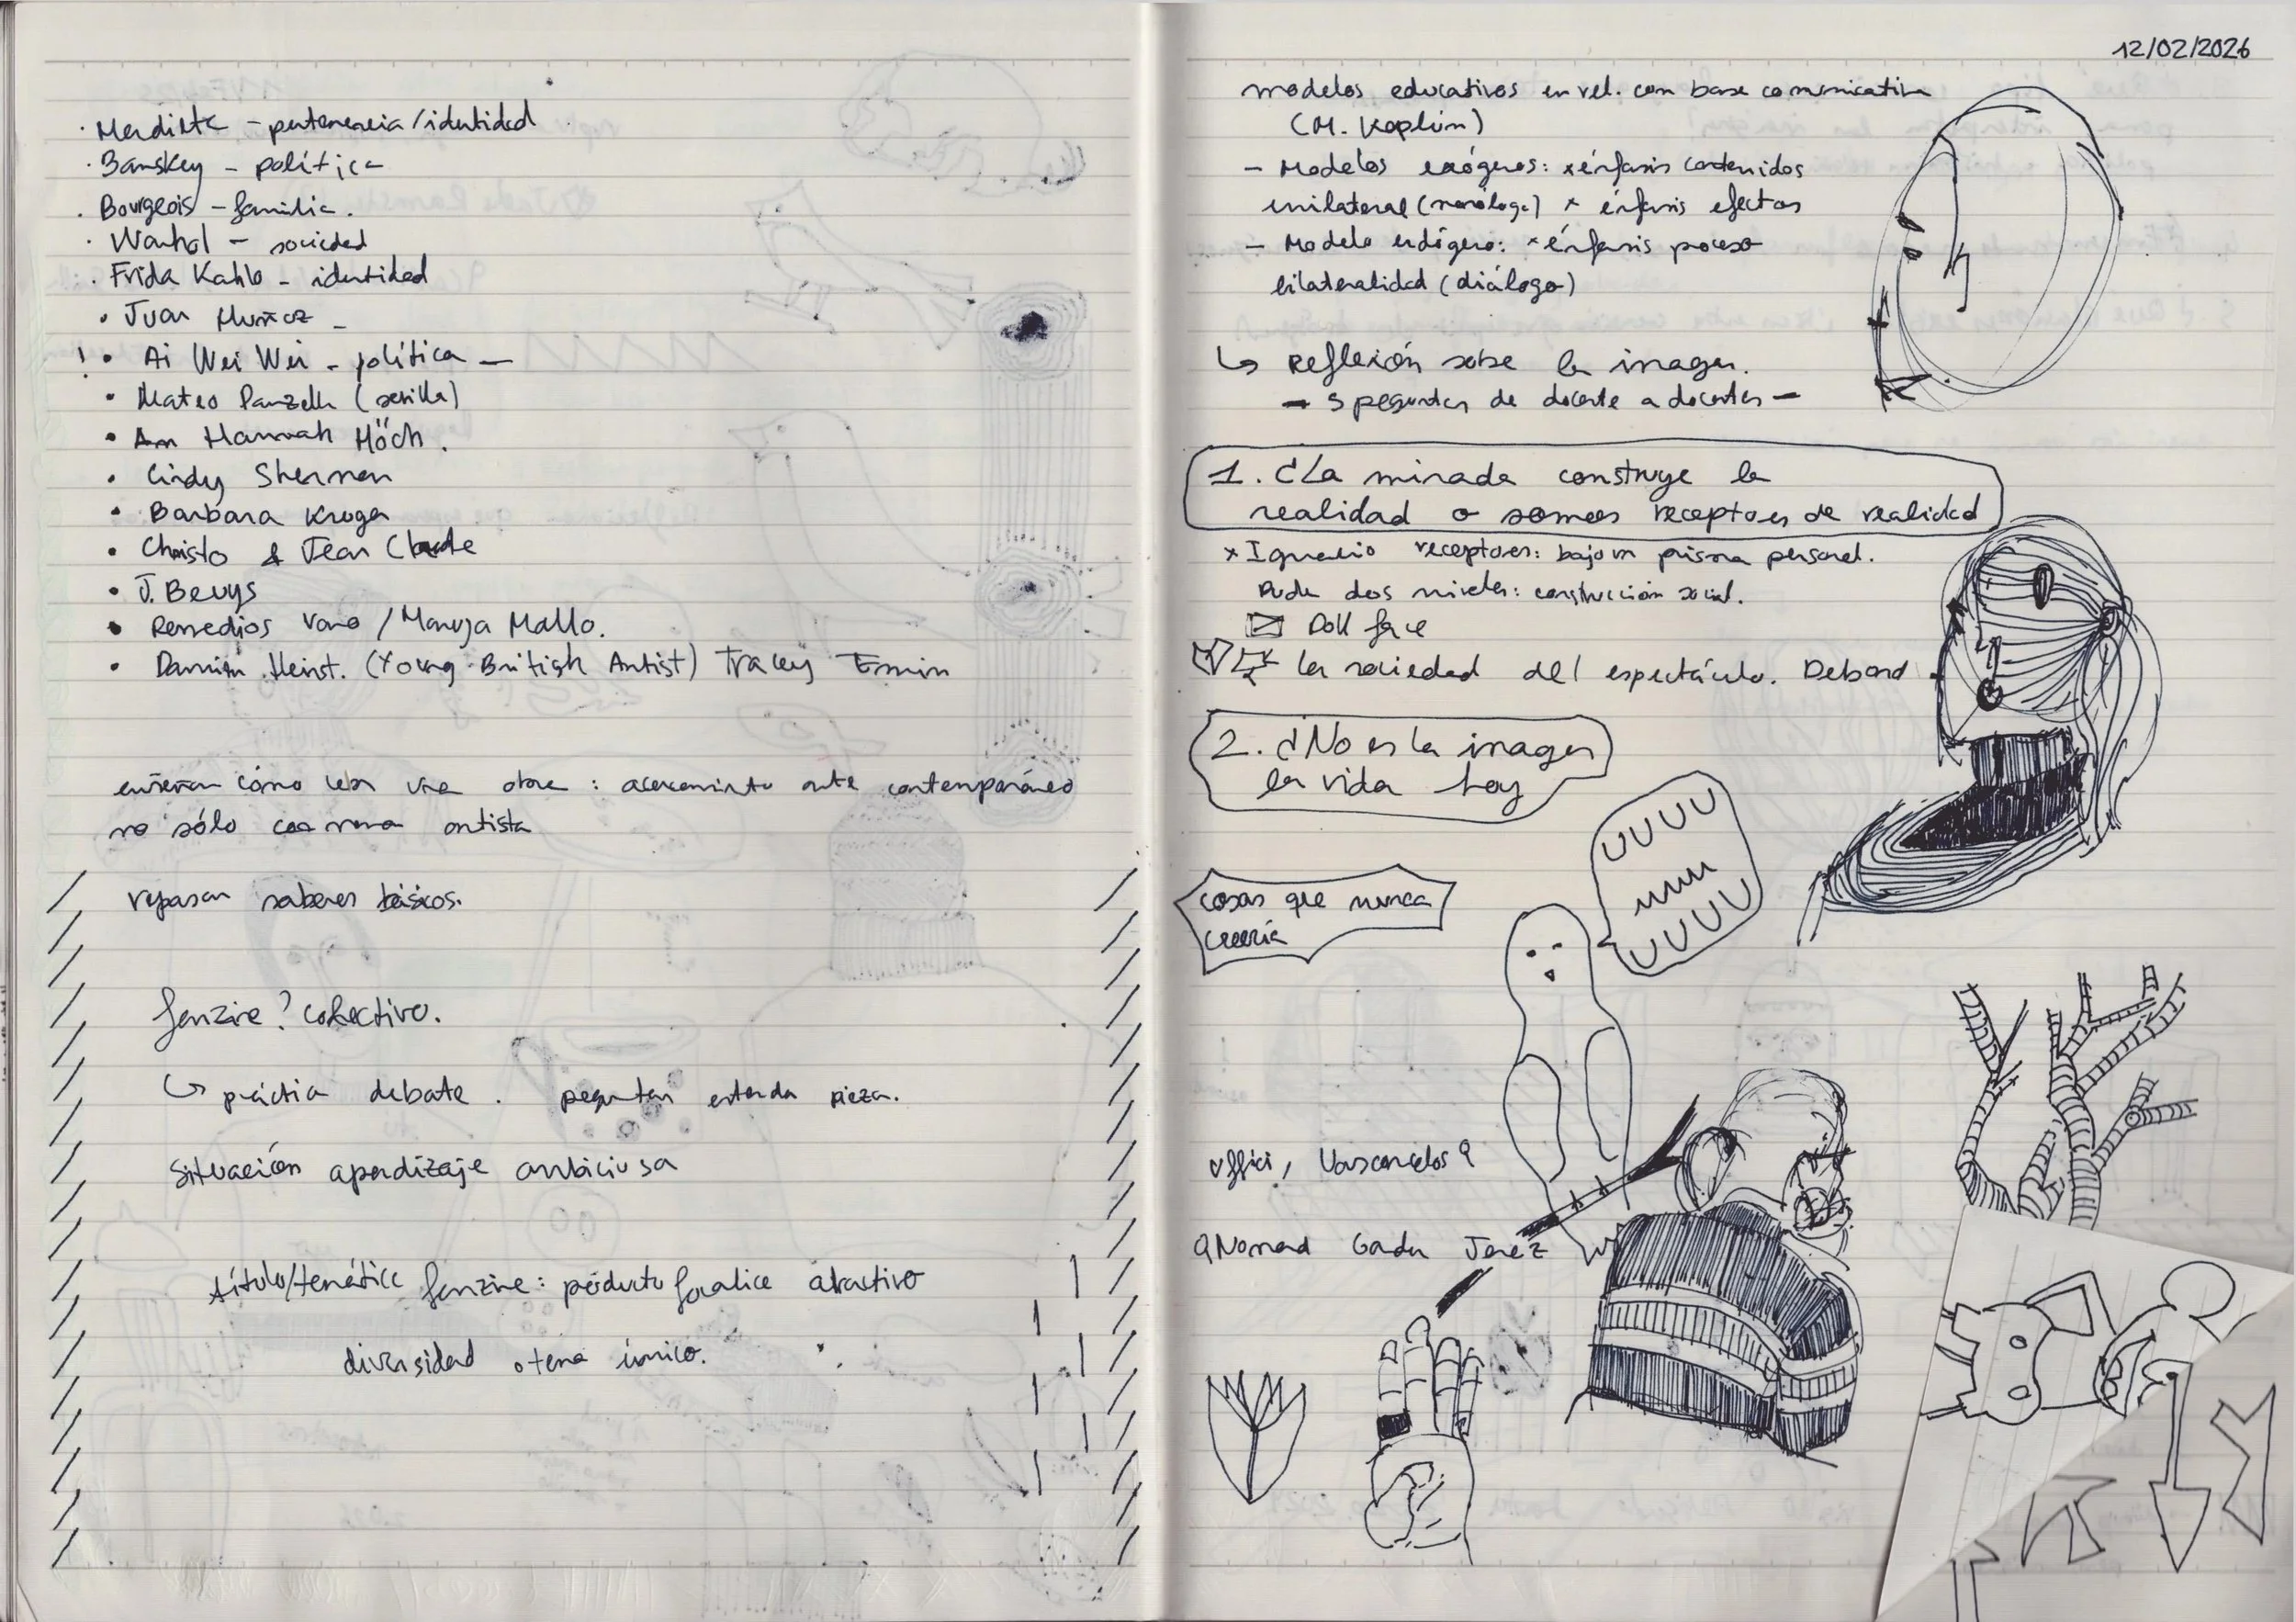 · Mendieta - pertenencia/identidad
· Banskey - política
· Bourgeois - familia.
· Warhol - sociedad
· Frida Kahlo - identidad
· Juan Muñoz -
! · Ai Wei Wei - política -
· Mateo (sevilla)
· Hannah Höch.
· Cindy Sherman
· Barbara Kruger
· Christo & Jean Claude
· J. Beuys
· Remedios Varo / Maruja Mallo.
· Damien Heirst. (Young British Artist) Tracey Emin
enseñar cómo leer una obra : acercamiento arte contemporáneo
no sólo artista
repasar saberes básicos.
fanzine? colectivo.
↳ práctica debate. pieza.
Situación aprendizaje ambiciosa
título/temática fanzine: producto atractivo
diversidad o tema único.
12/02/2026
modelos educativos en rel. con base comunicativa
(M. Kaplún)
- Modelos exógenos: x énfasis contenidos
unilateral (monólogo) x énfasis efectos
- Modelo endógeno: x énfasis proceso
bilateralidad (diálogo)
↳ Reflexión sobre la imagen.
- 5 preguntas de docente a docentes -
1. ¿La mirada construye la
realidad o somos receptores de realidad
x Ignacio receptores: bajo un prisma personal.
dos niveles: construcción social.
Doll face
la sociedad del espectáculo. Debord
2. ¿No es la imagen
la vida hoy
UUUU
UUUU
cosas que nunca
creería
Uffici, Vasconcelos?
Nomad Jerez